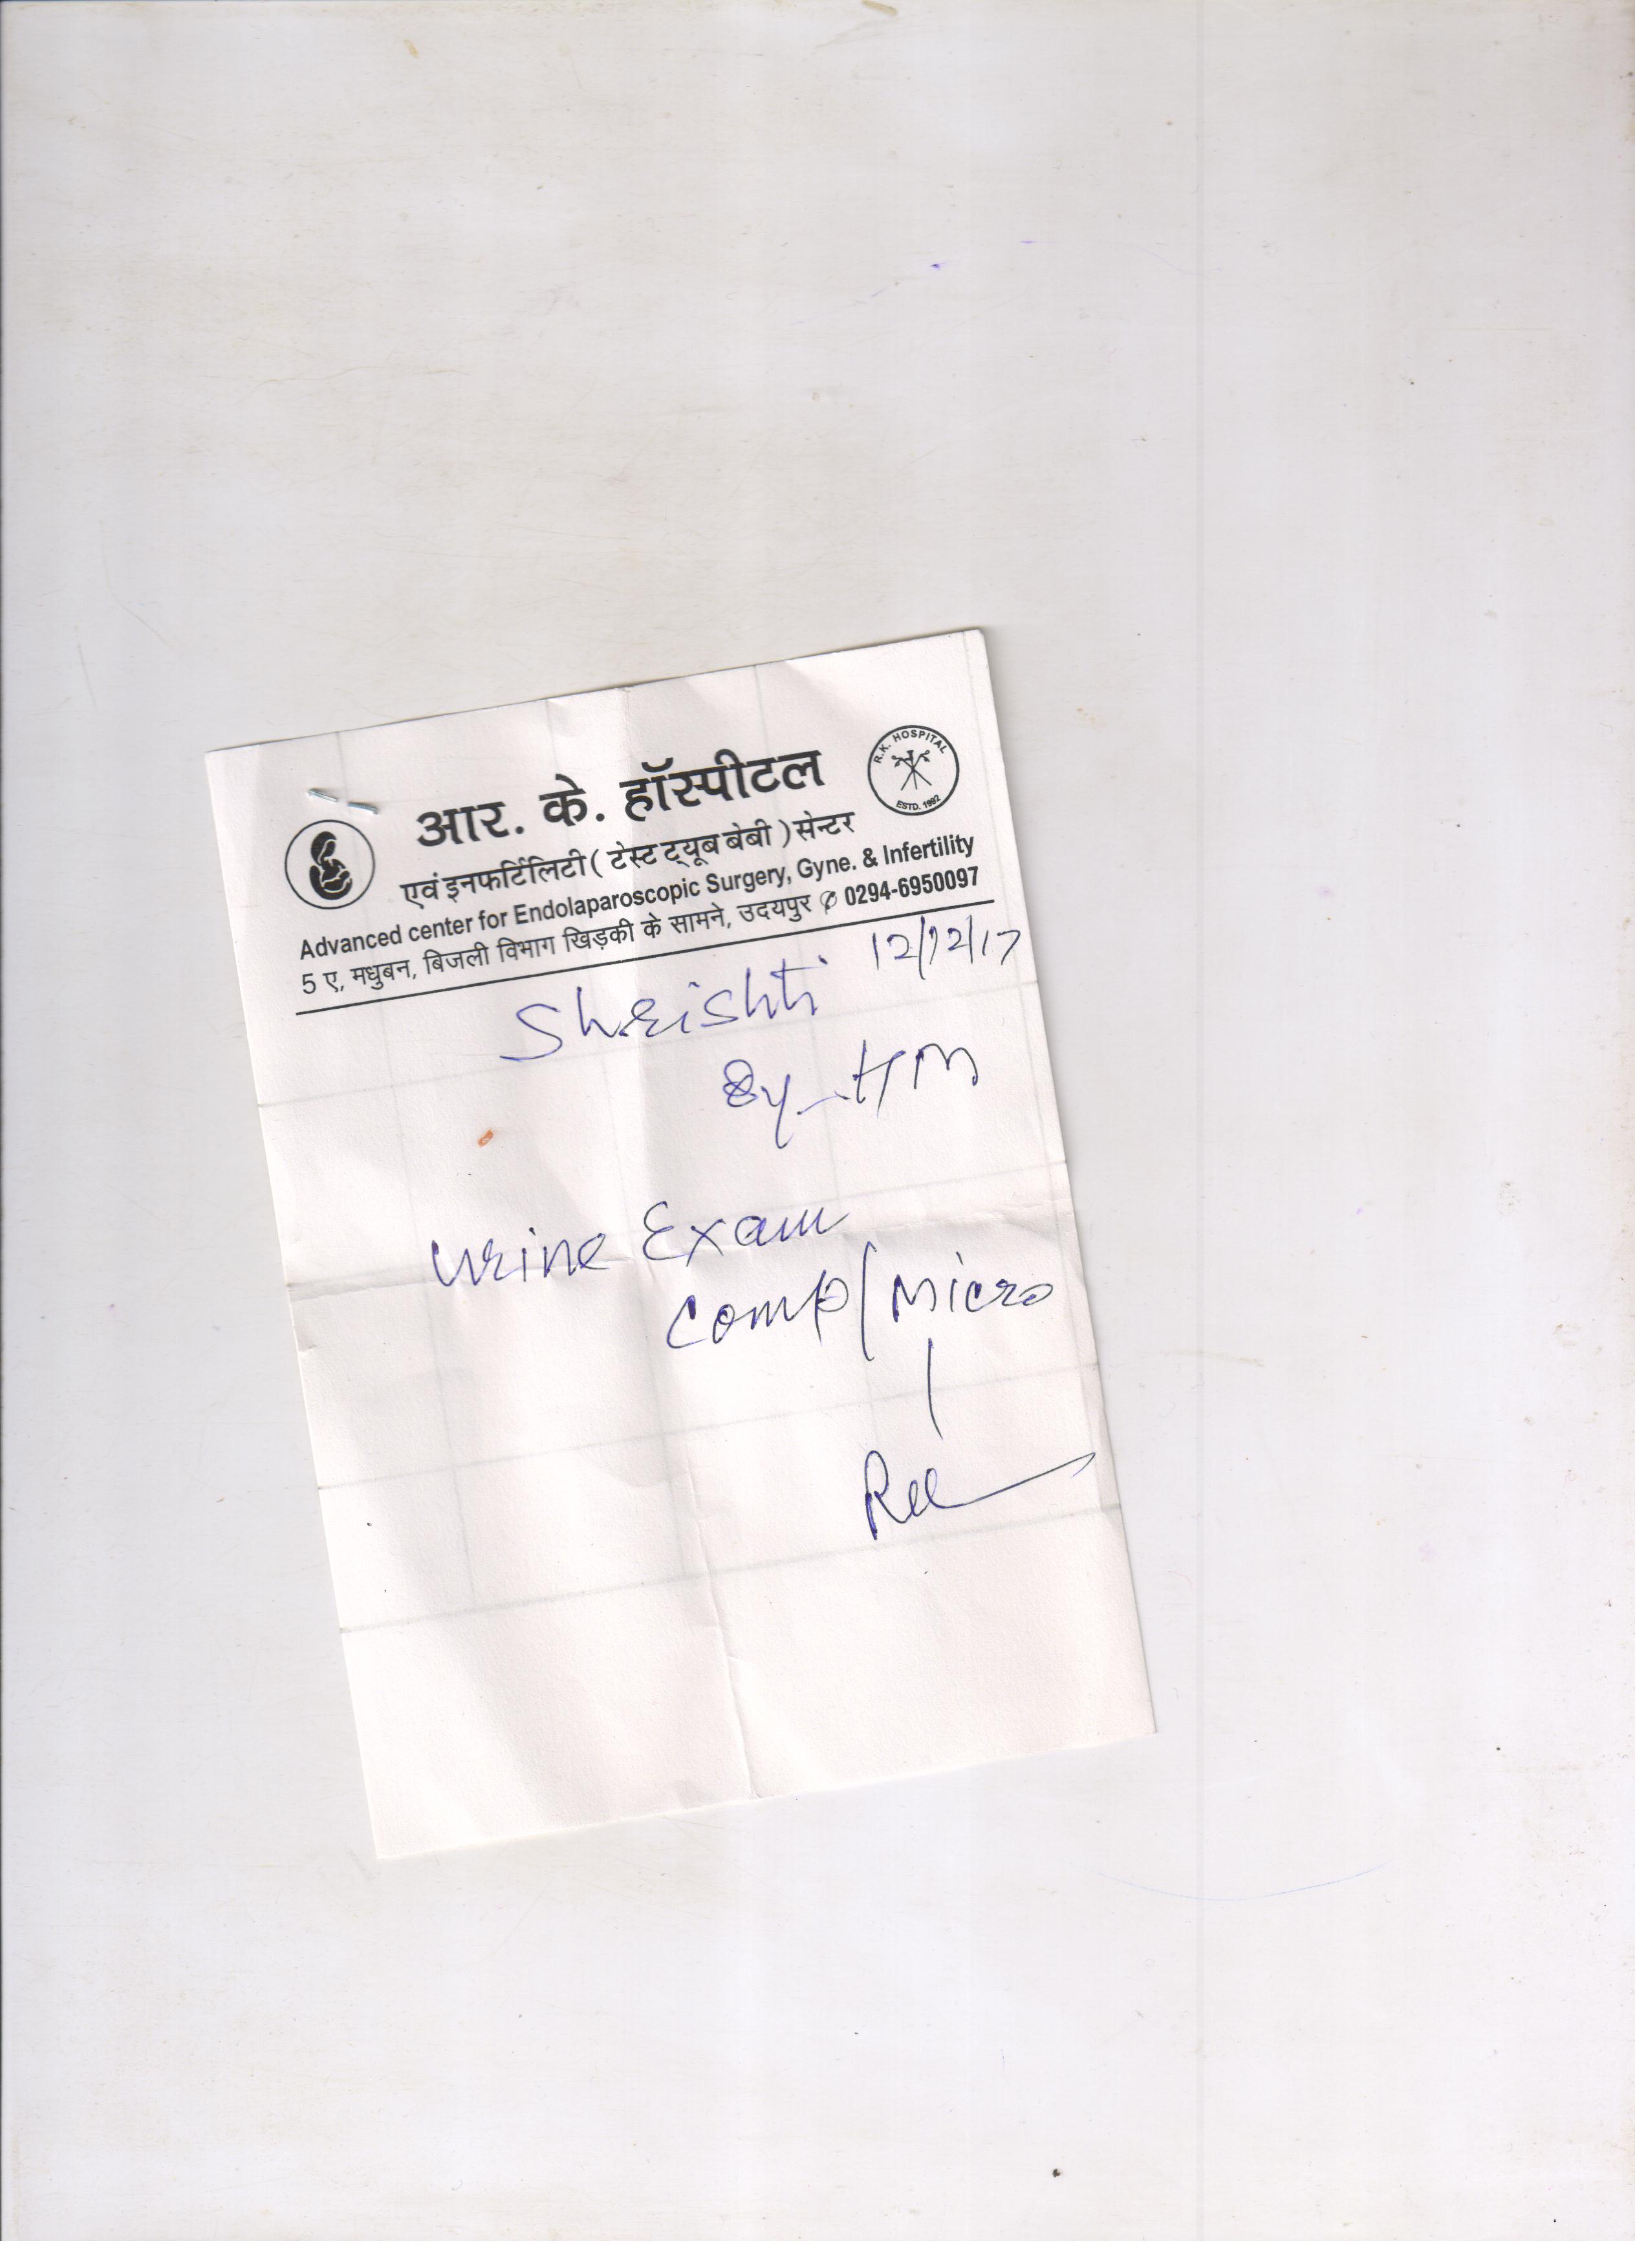 आर. के. हॉस्पीटल
R.K. HOSPITAL
ESTD. 1992
एवं इनफर्टिलिटी ( टेस्ट ट्यूब बेबी ) सेन्टर
Advanced center for Endolaparoscopic Surgery, Gyne. & Infertility
5 ए, मधुबन, बिजली विभाग खिड़की के सामने, उदयपुर ✆ 0294-6950097
12/12/17
Shrishti
HM
Urine Exam
Comp/Micro